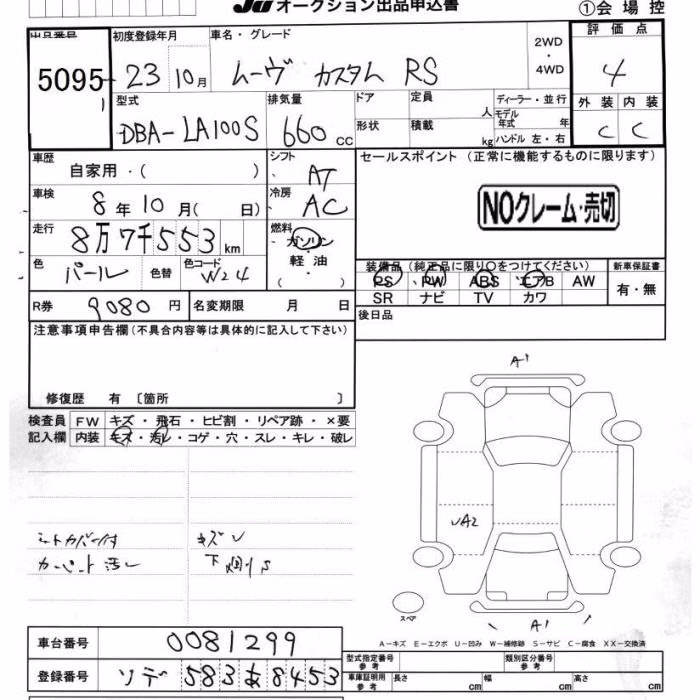 JU オークション出品申込書
①会場控
出品番号 5095
初度登録年月 23 10月
車名・グレード ムーヴ カスタム RS
2WD・4WD
評価点 4
外装 C 内装 C
型式 DBA-LA100S
排気量 660 cc
ドア
形状
定員 人
積載 kg
ディーラー・並行
モデル年式 年
ハンドル 左・右
車歴 自家用・( )
シフト AT
車検 8年10月( 日)
冷房 AC
走行 8万7千553km
燃料 ガソリン・軽油・( )
色 パール 色替 色コード W24
R券 9080円 名変期限 月 日
セールスポイント (正常に機能するものに限ります)
NOクレーム・売切
装備品(純正品に限り○をつけてください)
新車保証書
PS PW ABS エアB AW
SR ナビ TV カワ
有・無
後日品
注意事項申告欄(不具合内容等は具体的に記入して下さい)
修復歴 有〔箇所 〕
検査員記入欄
FW キズ・飛石・ヒビ割・リペア跡・×要
内装 キズ・汚れ・コゲ・穴・スレ・キレ・破レ
シートカバー付
カーペット汚レ
A1
UA2
A1
スペア
A－キズ E－エクボ U－凹み W－補修跡 S－サビ C－腐食 XX－交換済
車台番号 0081299
登録番号 ソデ 583あ8453
型式指定番号参考
類別区分番号参考
車庫証明用参考 長さ cm 幅 cm 高さ cm